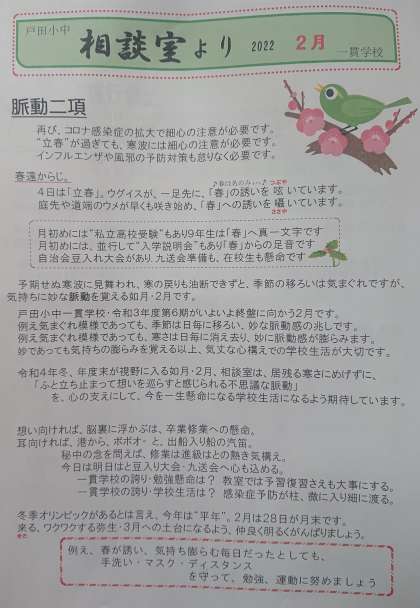 戸田小中
相談室より 2022 2月
一貫学校
脈動二項
再び、コロナ感染症の拡大で細心の注意が必要です。
“立春”が過ぎても、寒波には細心の注意が必要です。
インフルエンザや風邪の予防対策も怠りなく必要です。
春遠からじ。
♪春は名のみぃ～♪ つぶや
4日は「立春」。ウグイスが、一足先に、「春」の誘いを 呟いています。
庭先や道端のウメが早くも咲き始め、「春」への誘いを 囁いています。
ささや
月初めには“私立高校受験”もあり9年生は「春」へ真一文字です
月初めには、並行して“入学説明会”もあり「春」からの足音です
自治会豆入れ大会があり 九送会準備も、在校生も懸命です
予期せぬ寒波に見舞われ、寒の戻りも油断できずと、季節の移ろいは気まぐれですが、
気持ちに妙な脈動を覚える如月・2月です。
戸田小中一貫学校・令和3年度第6期がいよいよ終盤に向かう2月です。
例え気まぐれ模様であっても、季節は日毎に移ろい、妙な脈動感の兆しです。
例え気まぐれ模様であっても、寒さは日毎に消え去り、妙に脈動感が膨らみます。
妙であっても気持ちの膨らみを覚える以上、気丈な心構えでの学校生活が大切です。
令和4年冬、年度末が視野に入る如月・2月、相談室は、居残る寒さにめげずに、
「ふと立ち止まって想いを巡らすと感じられる不思議な脈動」
を、心の支えにして、今を一生懸命になる学校生活になるよう期待しています。
想い向ければ、脳裏に浮かぶは、卒業修業への懸命。
耳向ければ、港から、ボボオ‐ と、出船入り船の汽笛。
秘中の念を問えば、修業は進級はとの熱き気構え。
今日は明日はと豆入り大会・九送会へ心も込める。
一貫学校の誇り・勉強懸命は? 教室では予習復習さえも大事にする。
一貫学校の誇り・学校生活は? 感染症予防が柱、微に入り細に渡る。
冬季オリンピックがあるとは言え、今年は“平年”。2月は28日が月末です。
来る、ワクワクする弥生・3月への土台になるよう、仲良く明るくがんばりましょう。
きた
例え、春が誘い、気持ち膨らむ毎日だったとしても、
手洗い・マスク・ディスタンス
を守って、勉強、運動に努めましょう